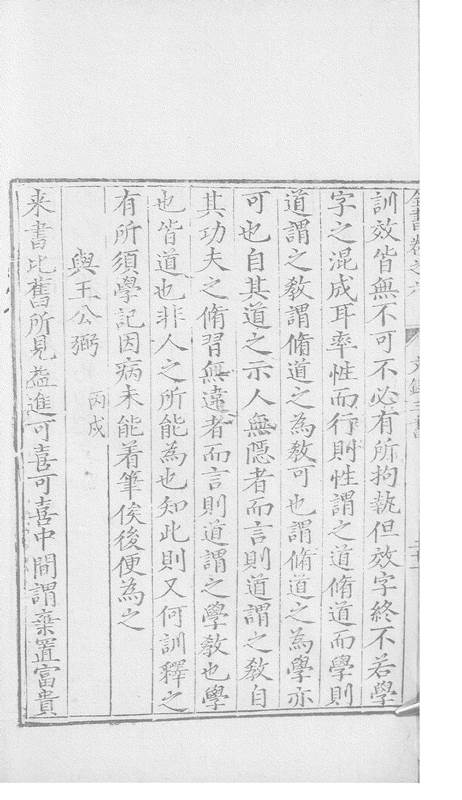 全書卷之六
文錄三書
訓效皆無不可不必有所拘執但效字終不若學
字之混成耳率性而行則性謂之道脩道而學則
道謂之教謂脩道之為教可也謂脩道之為學亦
可也自其道之示人無隱者而言則道謂之教自
其功夫之脩習無違者而言則道謂之學教也學
也皆道也非人之所能為也知此則又何訓釋之
有所須學記因病未能着筆俟後便為之
與王公弼 丙戌
来書比舊所見益進可喜可喜中間謂棄置富貴